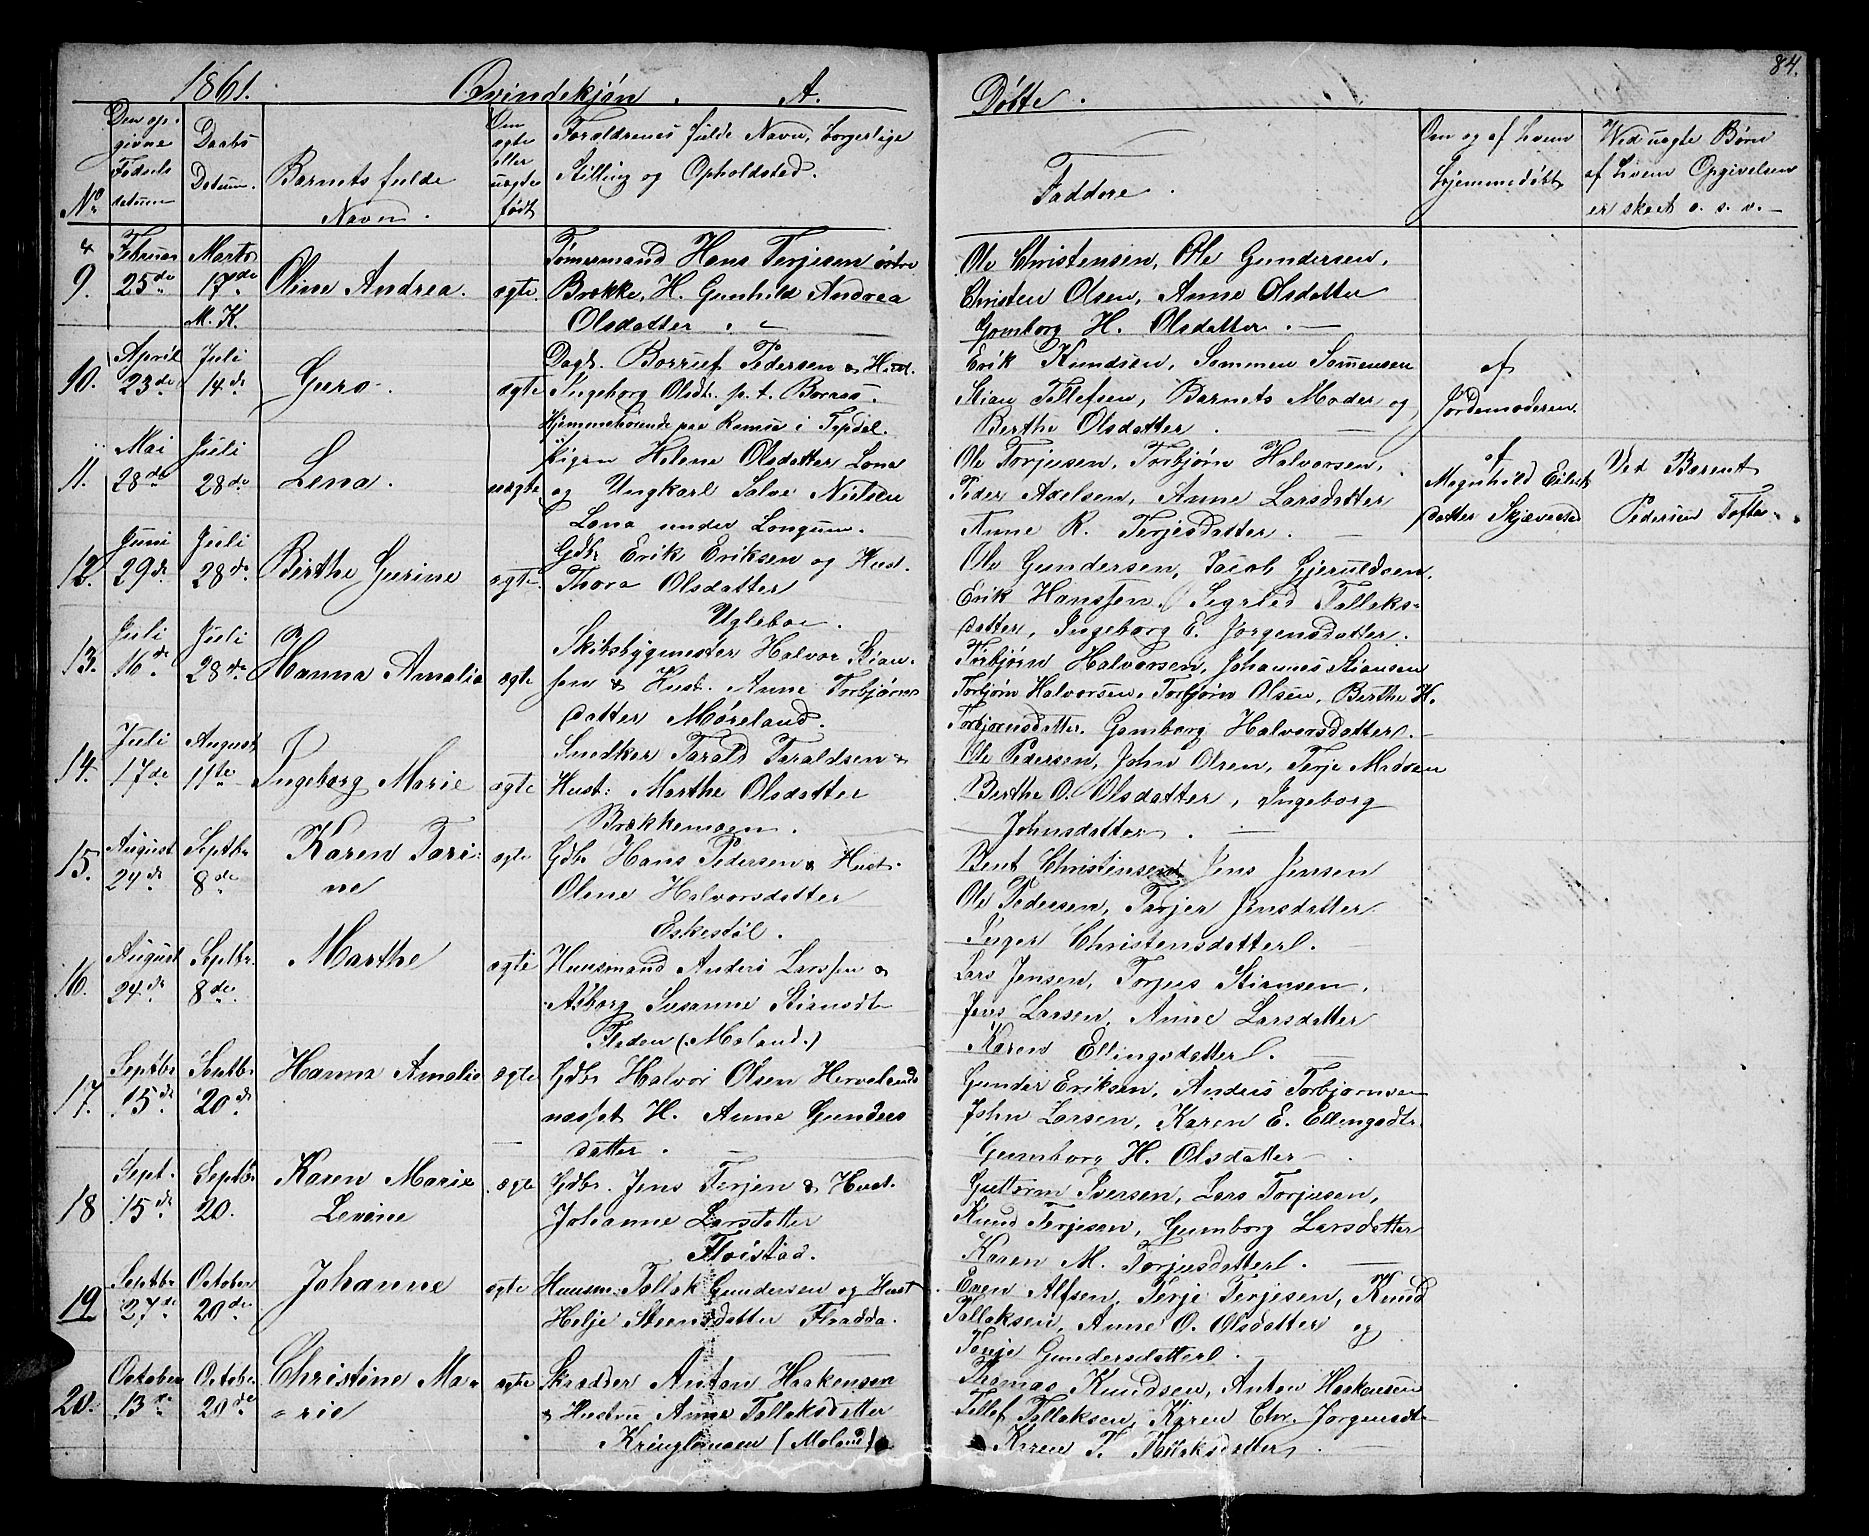 1861. Qvindekjøn. A. Døbte. 84.
No
Den opgivne Fødselsdatum
Daabs Datum.
Barnets fulde Navn.
Om ægte eller uægte født
Forældrenes fulde Navn, borgerlige Stilling og Opholdsted.
Faddere.
Om og af hvem hjemmedøbt
Ved uægte Børn af hvem Opgivelsen er skeet o. s. v.
9. Februar 25de Marts 17de M. K. Oline Andrea. ægte.
Tømermand Hans Terjesen østre
Brække, H. Gunhild Andrea
Olsdatter.
Ole Christensen, Ole Gundersen,
Christen Olsen, Anne Olsdatter
Gomborg H. Olsdatter.
10. April 23de Juli 14de Guro. ægte
Dagl. Pedersen & Hust.
Ingeborg Olsdt. p. t. Boraas.
Hjemmehørende paa i
Erik Knudsen, Sommen Somensen
Stian Tellefsen, Barnets Moder og
Berthe Olsdatter.
af
Jordemoderen.
11. Mai 28de Juli 28de Lena. uægte
Pigen Helene Olsdatter Lona
og Ungkarl Salve Nielsen
Lona under Longum.
Ole Torjusen, Torbjørn Halvorsen,
Peder Axelsen, Anne Larsdatter
Anne R. Terjesdatter.
af
Magnhild
datter
Ved Berent
Pedersen Tofte.
12. Juni 29de Juli 28de Birthe Gurine ægte
Gdbr Erik Eriksen og Hust.
Thora Olsdatter
Ugleboe.
Ole Gundersen, Jacob Gjeruldsen,
Erik Hanssen, Segrled Talleks-
datter, Ingeborg E. Jørgensdatter.
13. Juli 16de Juli 28de Hanna Amalia ægte
Skibsbygmester Halvor Stian-
sen & Hust. Anne Torbjørns
datter Møreland.
Torbjørn Halvorsen, Johannes Stiansen
Torbjørn Halvorsen, Torbjørn Olsen, Berthe H.
Torbjørnsdatter, Gomborg Halvorsdatter.
14. Juli 17de August 11te Ingeborg Marie ægte
Snedker Tarald Taraldsen &
Hust: Marthe Olsdatter
Brækkemoen.
Ole Pedersen, John Olsen, Terje Madsen
Berthe O. Olsdatter, Ingeborg
Johnsdatter.
15. August 24de Septbr 8de Karen Tori-
ne ægte
Gdbr Hans Pedersen & Hust.
Olene Halvorsdatter
Eskestøl.
Bent Christensen Jens Jensen
Ole Pedersen, Tarjer Jensdatter
Inger Christensdatter.
16. August 24de Septbr. 8de Marthe ægte
Huusmand Anders Larssen &
Aasborg Susanne Stiansdt
Fladen (Moland.)
Lars Jensen, Torjus Stiansen,
Jens Larsen, Anne Larsdatter
Karen Ellingsdatter.
17. Septbr 15de Septbr 20de Hanna Amalie ægte
Gdbr Halvor Olsen Hervelands
næsset H. Anne Gunders
datter.
Gunder Eriksen, Anders Torbjørnsen
John Larsen, Karen E. Ellingsdtr.
Gumborg H. Olsdatter
18 Sept. 15de Septbr 20. Karen Marie
Levine ægte
Gdbr. Jens Terjen & Hust.
Johanne Larsdatter
Fløistad.
Guttorm Iversen, Lars Torjusen,
Knud Terjesen, Gumborg Larsdatter
Karen M. Torjusdatter.
19 Septbr 27de October 20de Johanne ægte
Huusm. Tallak Gundersen og Hust
Helje Steensdatter Fladda.
Even Alfsen, Terje Terjesen, Knud
Tallaksen, Anne O. Olsdatter og
Tonje Gundersdatter.
20. October 13de Octobr 20de Christine Ma-
rie ægte
Skrædder Anton Haakensen
& Hustru Anne Tallaksdatter
Kringlemoen (Moland)
Thomas Knudsen, Anton Haakensen
Tellef Tallaksen, Karen Chr. Jørgensdt
Karen T. Tallaksdatter.